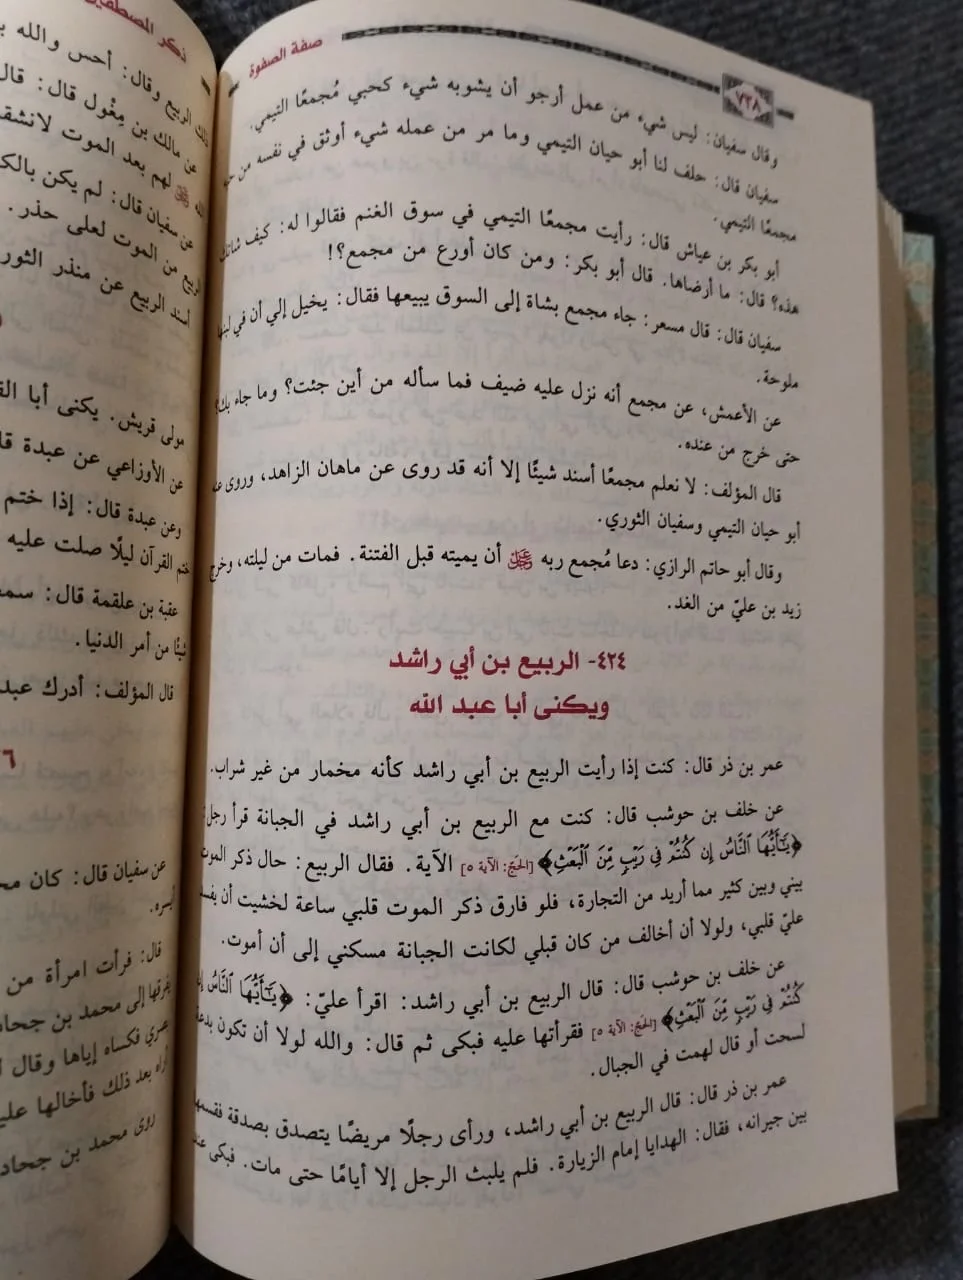 ٧٢٨
صفة الصفوة
وقال سفيان: ليس شيء من عمل أرجو أن يشوبه شيء كحبي مُجمعًا التيمي.
سفيان قال: حلف لنا أبو حيان التيمي وما مر من عمله شيء أوثق في نفسه من
مجمعًا التيمي.
أبو بكر بن عياش قال: رأيت مجمعًا التيمي في سوق الغنم فقالوا له: كيف شاتك
هذه؟ قال: ما أرضاها. قال أبو بكر: ومن كان أورع من مجمع؟!
سفيان قال: قال مسعر: جاء مجمع بشاة إلى السوق يبيعها فقال: يخيل إلي أن في لبنها
ملوحة.
عن الأعمش، عن مجمع أنه نزل عليه ضيف فما سأله من أين جئت؟ وما جاء بك؟
حتى خرج من عنده.
قال المؤلف: لا نعلم مجمعًا أسند شيئًا إلا أنه قد روى عن ماهان الزاهد، وروى عنه
أبو حيان التيمي وسفيان الثوري.
وقال أبو حاتم الرازي: دعا مُجمع ربه أن يميته قبل الفتنة. فمات من ليلته، وخرج
زيد بن عليّ من الغد.
٤٢٤- الربيع بن أبي راشد
ويكنى أبا عبد الله
عمر بن ذر قال: كنت إذا رأيت الربيع بن أبي راشد كأنه مخمار من غير شراب.
عن خلف بن حوشب قال: كنت مع الربيع بن أبي راشد في الجبانة قرأ رجل:
﴿يَٰٓأَيُّهَا ٱلنَّاسُ إِن كُنتُمْ فِى رَيْبٍ مِّنَ ٱلْبَعْثِ﴾ [الحَج: الآية ٥] الآية. فقال الربيع: حال ذكر الموت
بيني وبين كثير مما أريد من التجارة، فلو فارق ذكر الموت قلبي ساعة لخشيت أن يفسد
عليّ قلبي، ولولا أن أخالف من كان قبلي لكانت الجبانة مسكني إلى أن أموت.
عن خلف بن حوشب قال: قال الربيع بن أبي راشد: اقرأ عليّ: ﴿يَٰٓأَيُّهَا ٱلنَّاسُ إِن
كُنتُمْ فِى رَيْبٍ مِّنَ ٱلْبَعْثِ﴾ [الحَج: الآية ٥] فقرأتها عليه فبكى ثم قال: والله لولا أن تكون بدعة
لسحت أو قال لهمت في الجبال.
عمر بن ذر قال: قال الربيع بن أبي راشد، ورأى رجلًا مريضًا يتصدق بصدقة فقسمها
بين جيرانه، فقال: الهدايا إمام الزيارة. فلم يلبث الرجل إلا أيامًا حتى مات. فبكى
ذكر المصطفين
الربيع وقال: أحس والله
عن مالك بن مِغْول قال: قال
لهم بعد الموت لانشقت
عن سفيان قال: لم يكن بالكوفة
الربيع من الموت لعلى حذر.
أسند الربيع عن منذر الثوري
مولى قريش. يكنى أبا
عن الأوزاعي عن عبدة
وعن عبدة قال: إذا ختم
ختم القرآن ليلًا صلت عليه
عقبة بن علقمة قال:
شيئًا من أمر الدنيا.
قال المؤلف: أدرك
عن سفيان قال: كان
قال: فرأت امرأة من
يفرقها إلى محمد بن
فكساه إياها وقال
بعد ذلك فأخالها
روى محمد بن جحادة